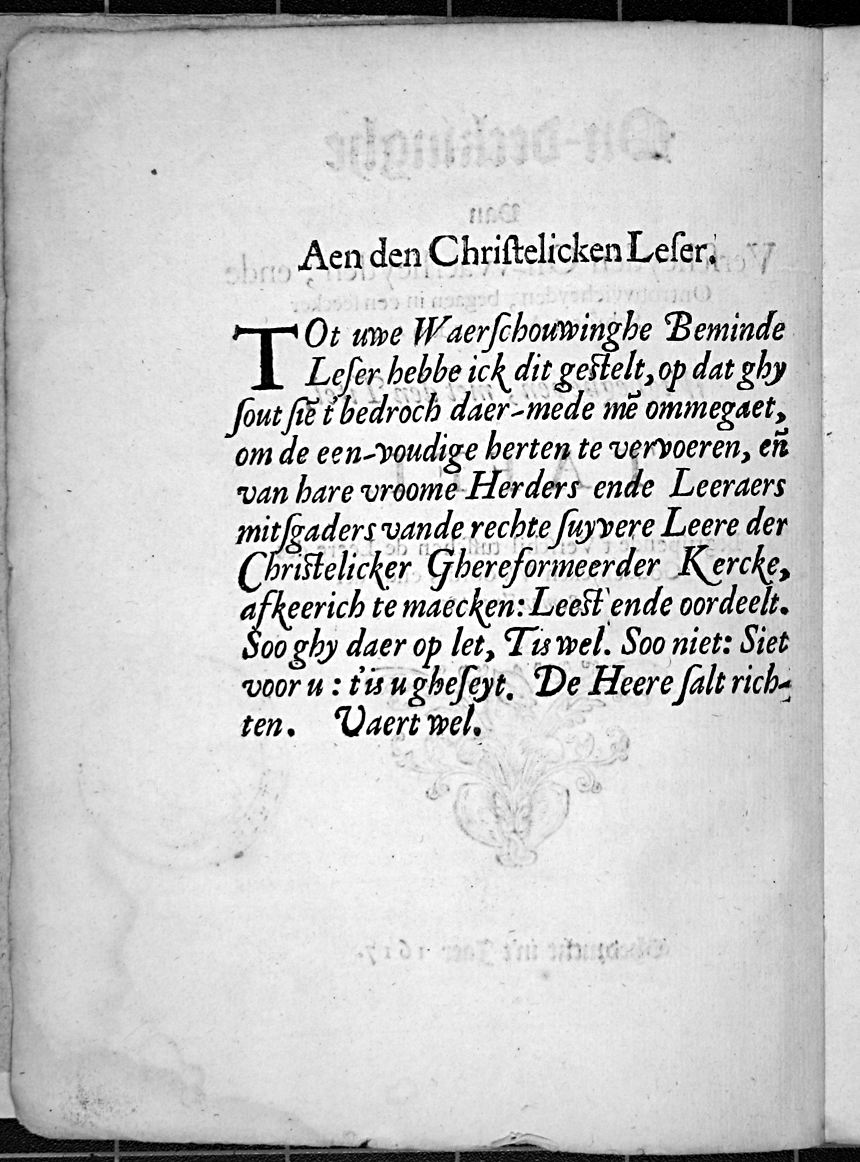 Aen den Chriſtelicken Leſer.
TOt uwe Waerſchouwinghe Beminde
Leſer hebbe ick dit geſtelt, op dat ghy
ſout ſiē t'bedroch daer-mede mē ommegaet,
om de een-voudige herten te vervoeren, eñ
van hare vroome Herders ende Leeraers
mitſgaders vande rechte ſuyvere Leere der
Chriſtelicker Ghereformeerder Kercke,
afkeerich te maecken: Leeſt ende oordeelt.
Soo ghy daer op let, Tis wel. Soo niet: Siet
voor u : t'is u gheſeyt. De Heere ſalt rich-
ten. Vaert wel.